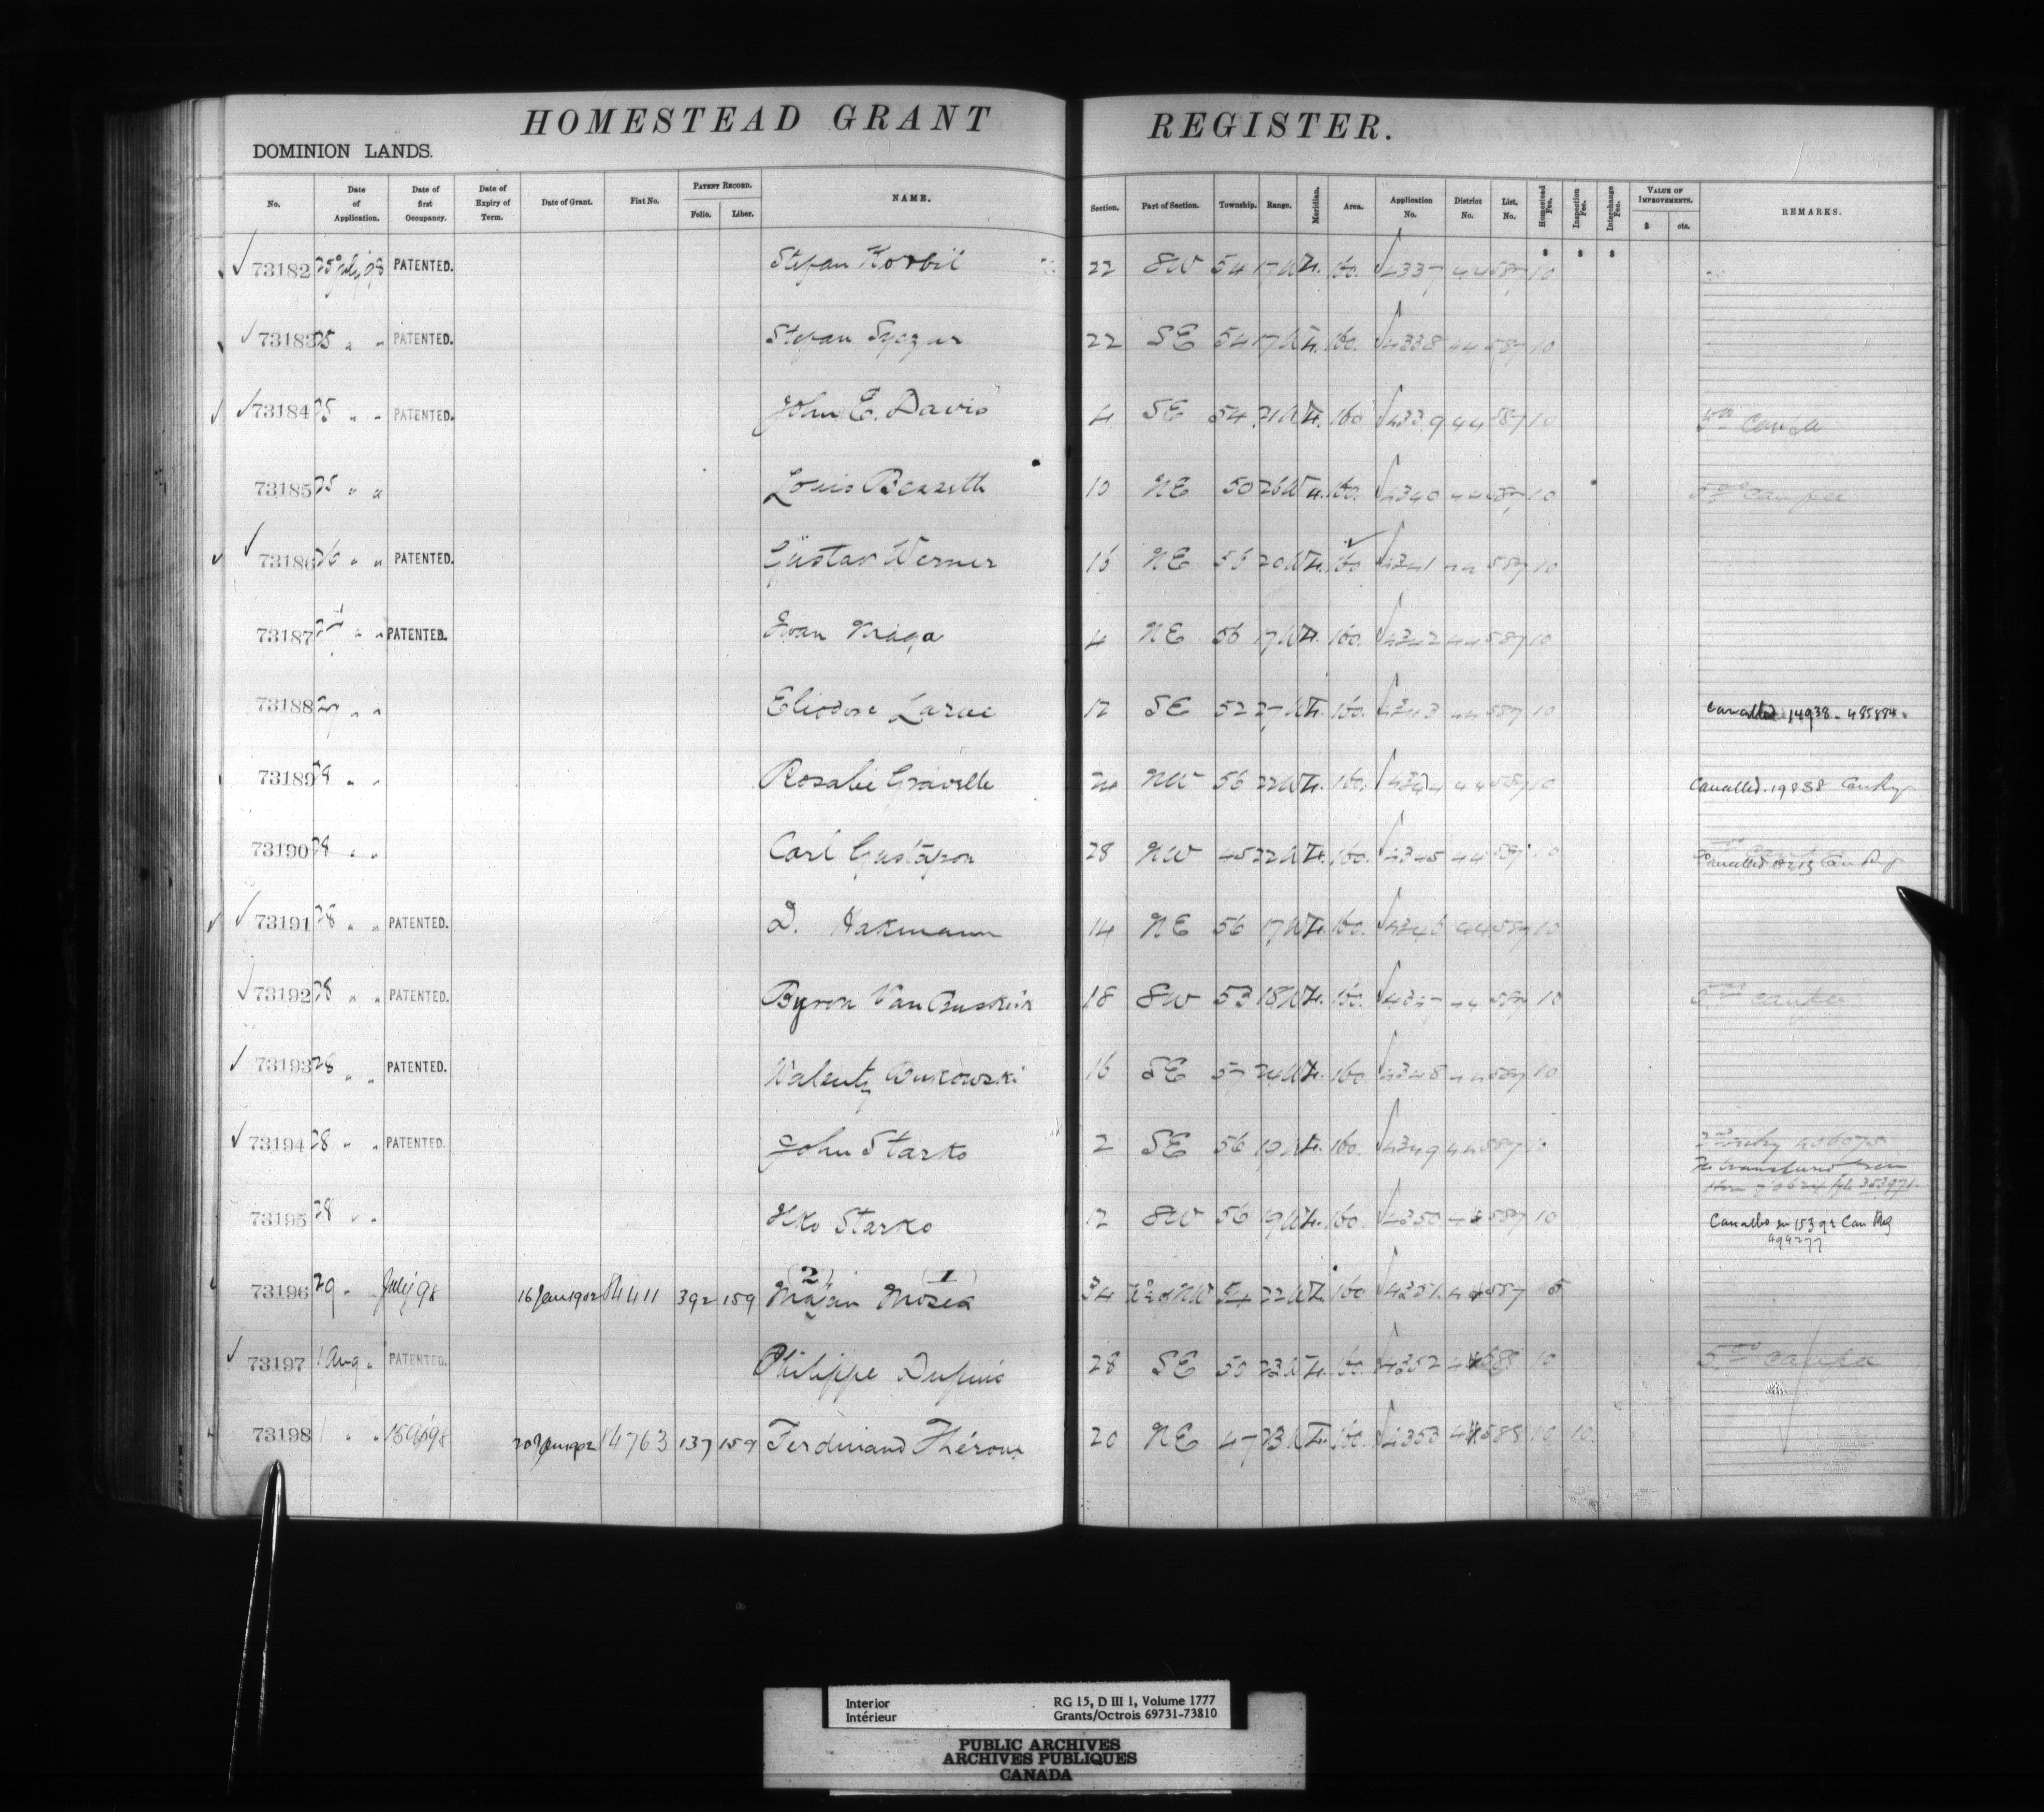 HOMESTEAD GRANT REGISTER.
DOMINION LANDS.
No. Date of Application. Date of first Occupancy. Date of Expiry of Term. Date of Grant. Fiat No. PATENT RECORD. Folio. Liber. NAME. Section. Part of Section. Township. Range. Meridian. Area. Application No. District No. List. No. Homestead Fee. Inspection Fee. Interchange Fee. VALUE OF IMPROVEMENTS. $ cts. REMARKS.
$ $ $
73182 25 July 98 PATENTED. Stefan 22 SW 54 17 W 4. 160. 4337 44 587 10
73183 25 " " PATENTED. Stefan 22 SE 54 17 W 4. 160. 4338 44 587 10
73184 25 " " PATENTED. John E. Davis 4 SE 54 21 W 4. 160 4339 44 587 10
73185 25 " " Louis 10 NE 50 26 W 4. 160. 4340 44 587 10
73186 26 " " PATENTED. Gustav Werner 16 NE 56 20 W 4. 160 4341 44 587 10
73187 " " PATENTED. Ivan 4 NE 56 17 W 4. 160. 4342 44 587 10
73188 " " Eliodore Larue 12 SE 52 27 W 4. 160. 4343 44 587 10 Cancelled 14938. 485884.
73189 28 " " Rosalie Gravelle 24 NW 56 22 W 4. 160. 4344 44 587 10 Cancelled. 19838 Can Reg
73190 28 " " Carl Gustafson 28 NW 45 22 W 4. 160. 4345 44 587 10 Cancelled Can Reg
73191 28 " " PATENTED. D. Hakmann 14 NE 56 17 W 4. 160. 4346 44 587 10
73192 28 " " PATENTED. Byron Van Buskirk 18 SW 53 18 W 4. 160. 4347 44 587 10
73193 28 " " PATENTED. Walenty 16 SE 57 24 W 4. 160 4348 44 587 10
73194 28 " " PATENTED. John Starko 2 SE 56 19 W 4. 160. 4349 44 587 10
73195 28 " " Starko 12 SW 56 19 W 4. 160. 4350 44 587 10 Cancelled in 15392 Can Reg
494277
(2) (1)
73196 29 " " July 98 16 Jan 1902 84411 392 159 34 NW 54 22 W 4. 160 4351. 44 587 5
73197 1 Aug " PATENTED. Philippe Dupuis 28 SE 50 23 W 4. 160. 4352 44 588 10
73198 1 " " 15 Ap 98 20 Jan 1902 84763 137 159 Ferdinand Théroux 20 NE 47 23 W 4. 160. 4353 44 588 10 10
Interior RG 15, D III 1, Volume 1777
Intérieur Grants/Octrois 69731-73810
PUBLIC ARCHIVES
ARCHIVES PUBLIQUES
CANADA